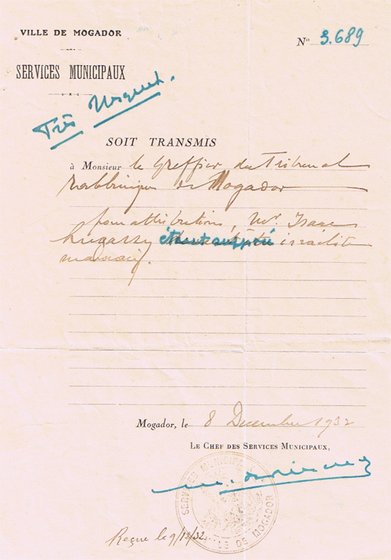 VILLE DE MOGADOR
N° 3.689
SERVICES MUNICIPAUX
Très Urgent.
SOIT TRANSMIS
à Monsieur le Greffier du Tribunal
rabbinique de Mogador
pour attributions, Mr Isaac
Lugassy étant sujet israélite
marocain.
Mogador, le 8 Décembre 1932
LE CHEF DES SERVICES MUNICIPAUX,
SERVICES MUNICIPAUX
VILLE DE MOGADOR
Reçue le 9/12/32